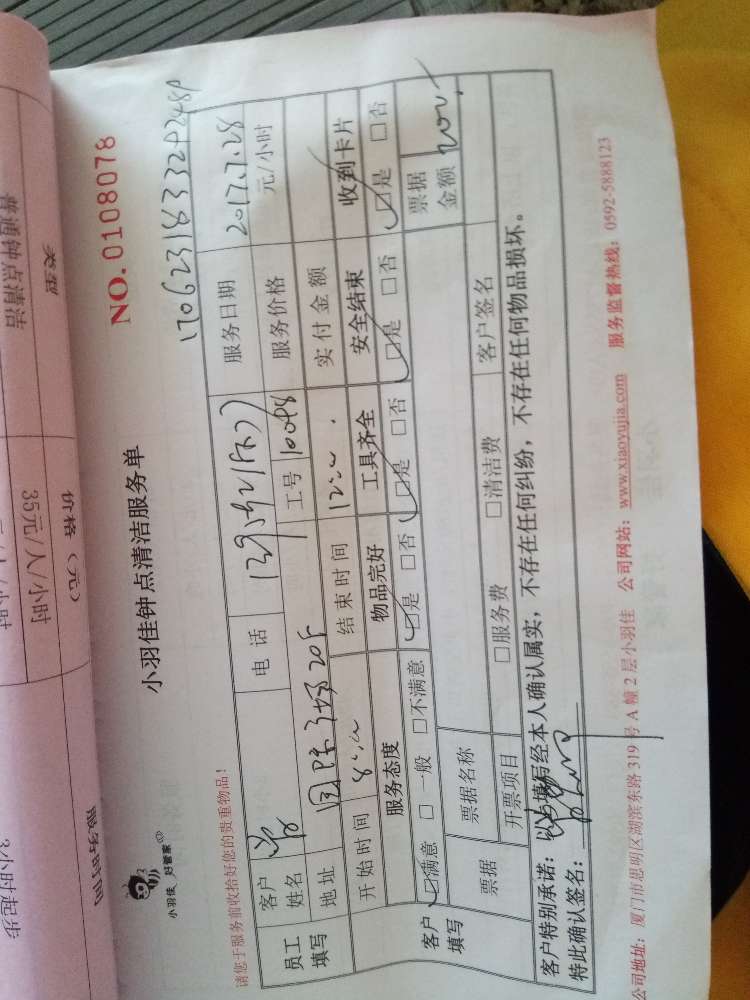 类型
价格（元）
普通钟点清洁
35元/人/小时
服务时间
3小时起步
小羽佳 好管家
小羽佳钟点清洁服务单
NO.0108078
请您于服务前收拾好您的贵重物品！
员工填写
客户姓名
电话
服务日期 2017.7.28
地址
工号 10098
服务价格 元/小时
开始时间 8:00
结束时间 12:00
实付金额
客户填写
服务态度 物品完好 工具齐全 安全结束 收到卡片
☑满意 □一般 □不满意 ☑是 □否 ☑是 □否 ☑是 □否 ☑是 □否
票据
票据名称
票据金额 200
开票项目 □服务费 □清洁费 客户签名
客户特别承诺：以上填写经本人确认属实，不存在任何纠纷，不存在任何物品损坏。
特此确认签名：
公司地址：厦门市思明区湖滨东路319号A幢2层小羽佳 公司网站：www.xiaoyujia.com 服务监督热线：0592-5888123